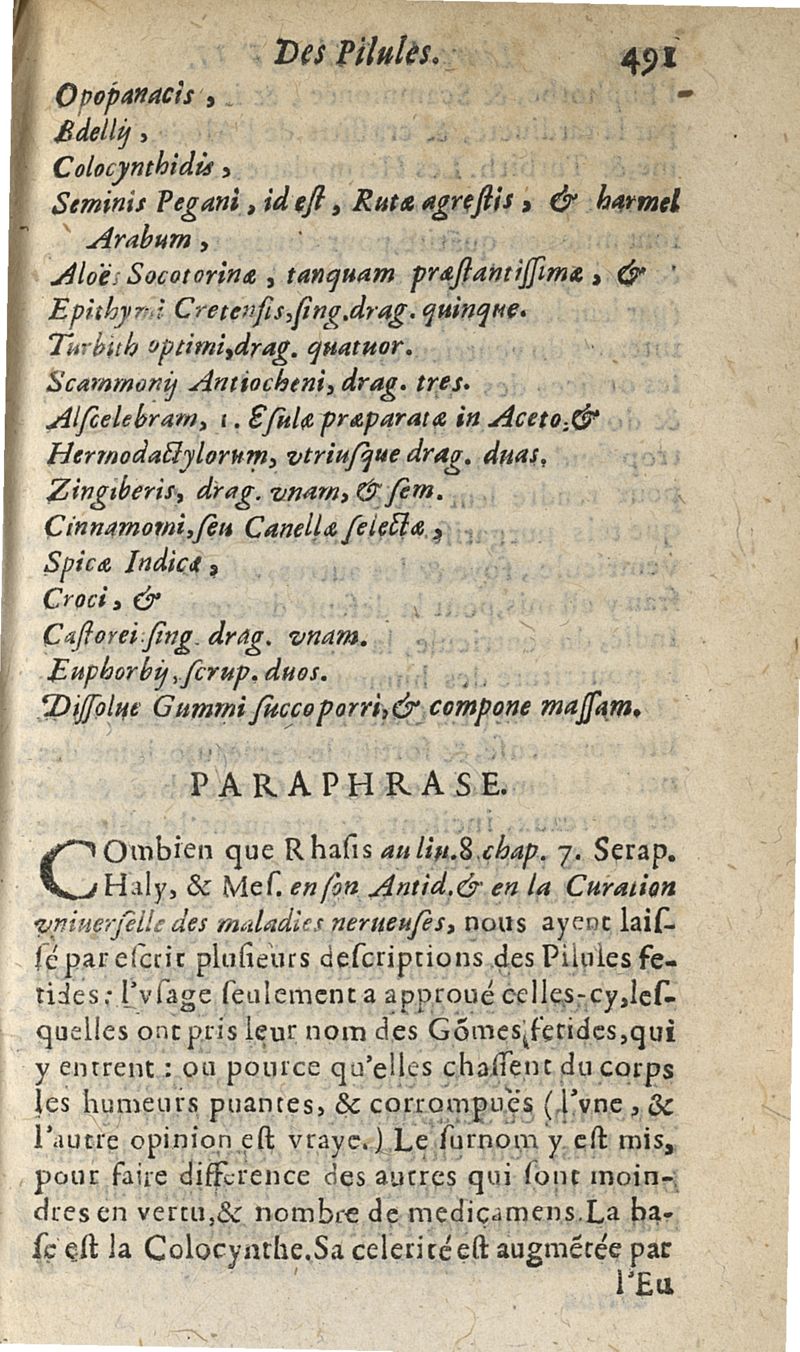 Des Pilules. 491
Opopanacis,
Bdellij,
Colocynthidis,
Seminis Pegani, id est, Rutæ agrestis, & harmel
Arabum,
Aloës Socotorinæ, tanquam præstantissimæ, &
Epithymi Cretensis, sing. drag. quinque.
Turbith optimi, drag. quatuor.
Scammonij Antiocheni, drag. tres.
Alscelebram, 1. Esulæ præparatæ in Aceto, &
Hermodactylorum, vtriusque drag. duas.
Zingiberis, drag. vnam, & sem.
Cinnamomi, seu Canellæ selectæ,
Spicæ Indicæ,
Croci, &
Castorei sing. drag. vnam.
Euphorbij, scrup. duos.
Dissolue Gummi succo porri, & compone massam.
PARAPHRASE.
COmbien que Rhasis au liu. 8. chap. 7. Serap.
Haly, & Mes. en son Antid. & en la Curation
vniuerselle des maladies nerueuses, nous ayent lais-
sé par escrit plusieurs descriptions des Pilules fe-
tides: l'vsage seulement a approué celles-cy, les-
quelles ont pris leur nom des Gõmes fetides, qui
y entrent: ou pource qu'elles chassent du corps
les humeurs puantes, & corrompuës (l'vne, &
l'autre opinion est vraye.) Le surnom y est mis,
pour faire difference des autres qui sont moin-
dres en vertu, & nombre de medicamens. La ba-
se est la Colocynthe. Sa celerité est augmẽtée par
l'Eu